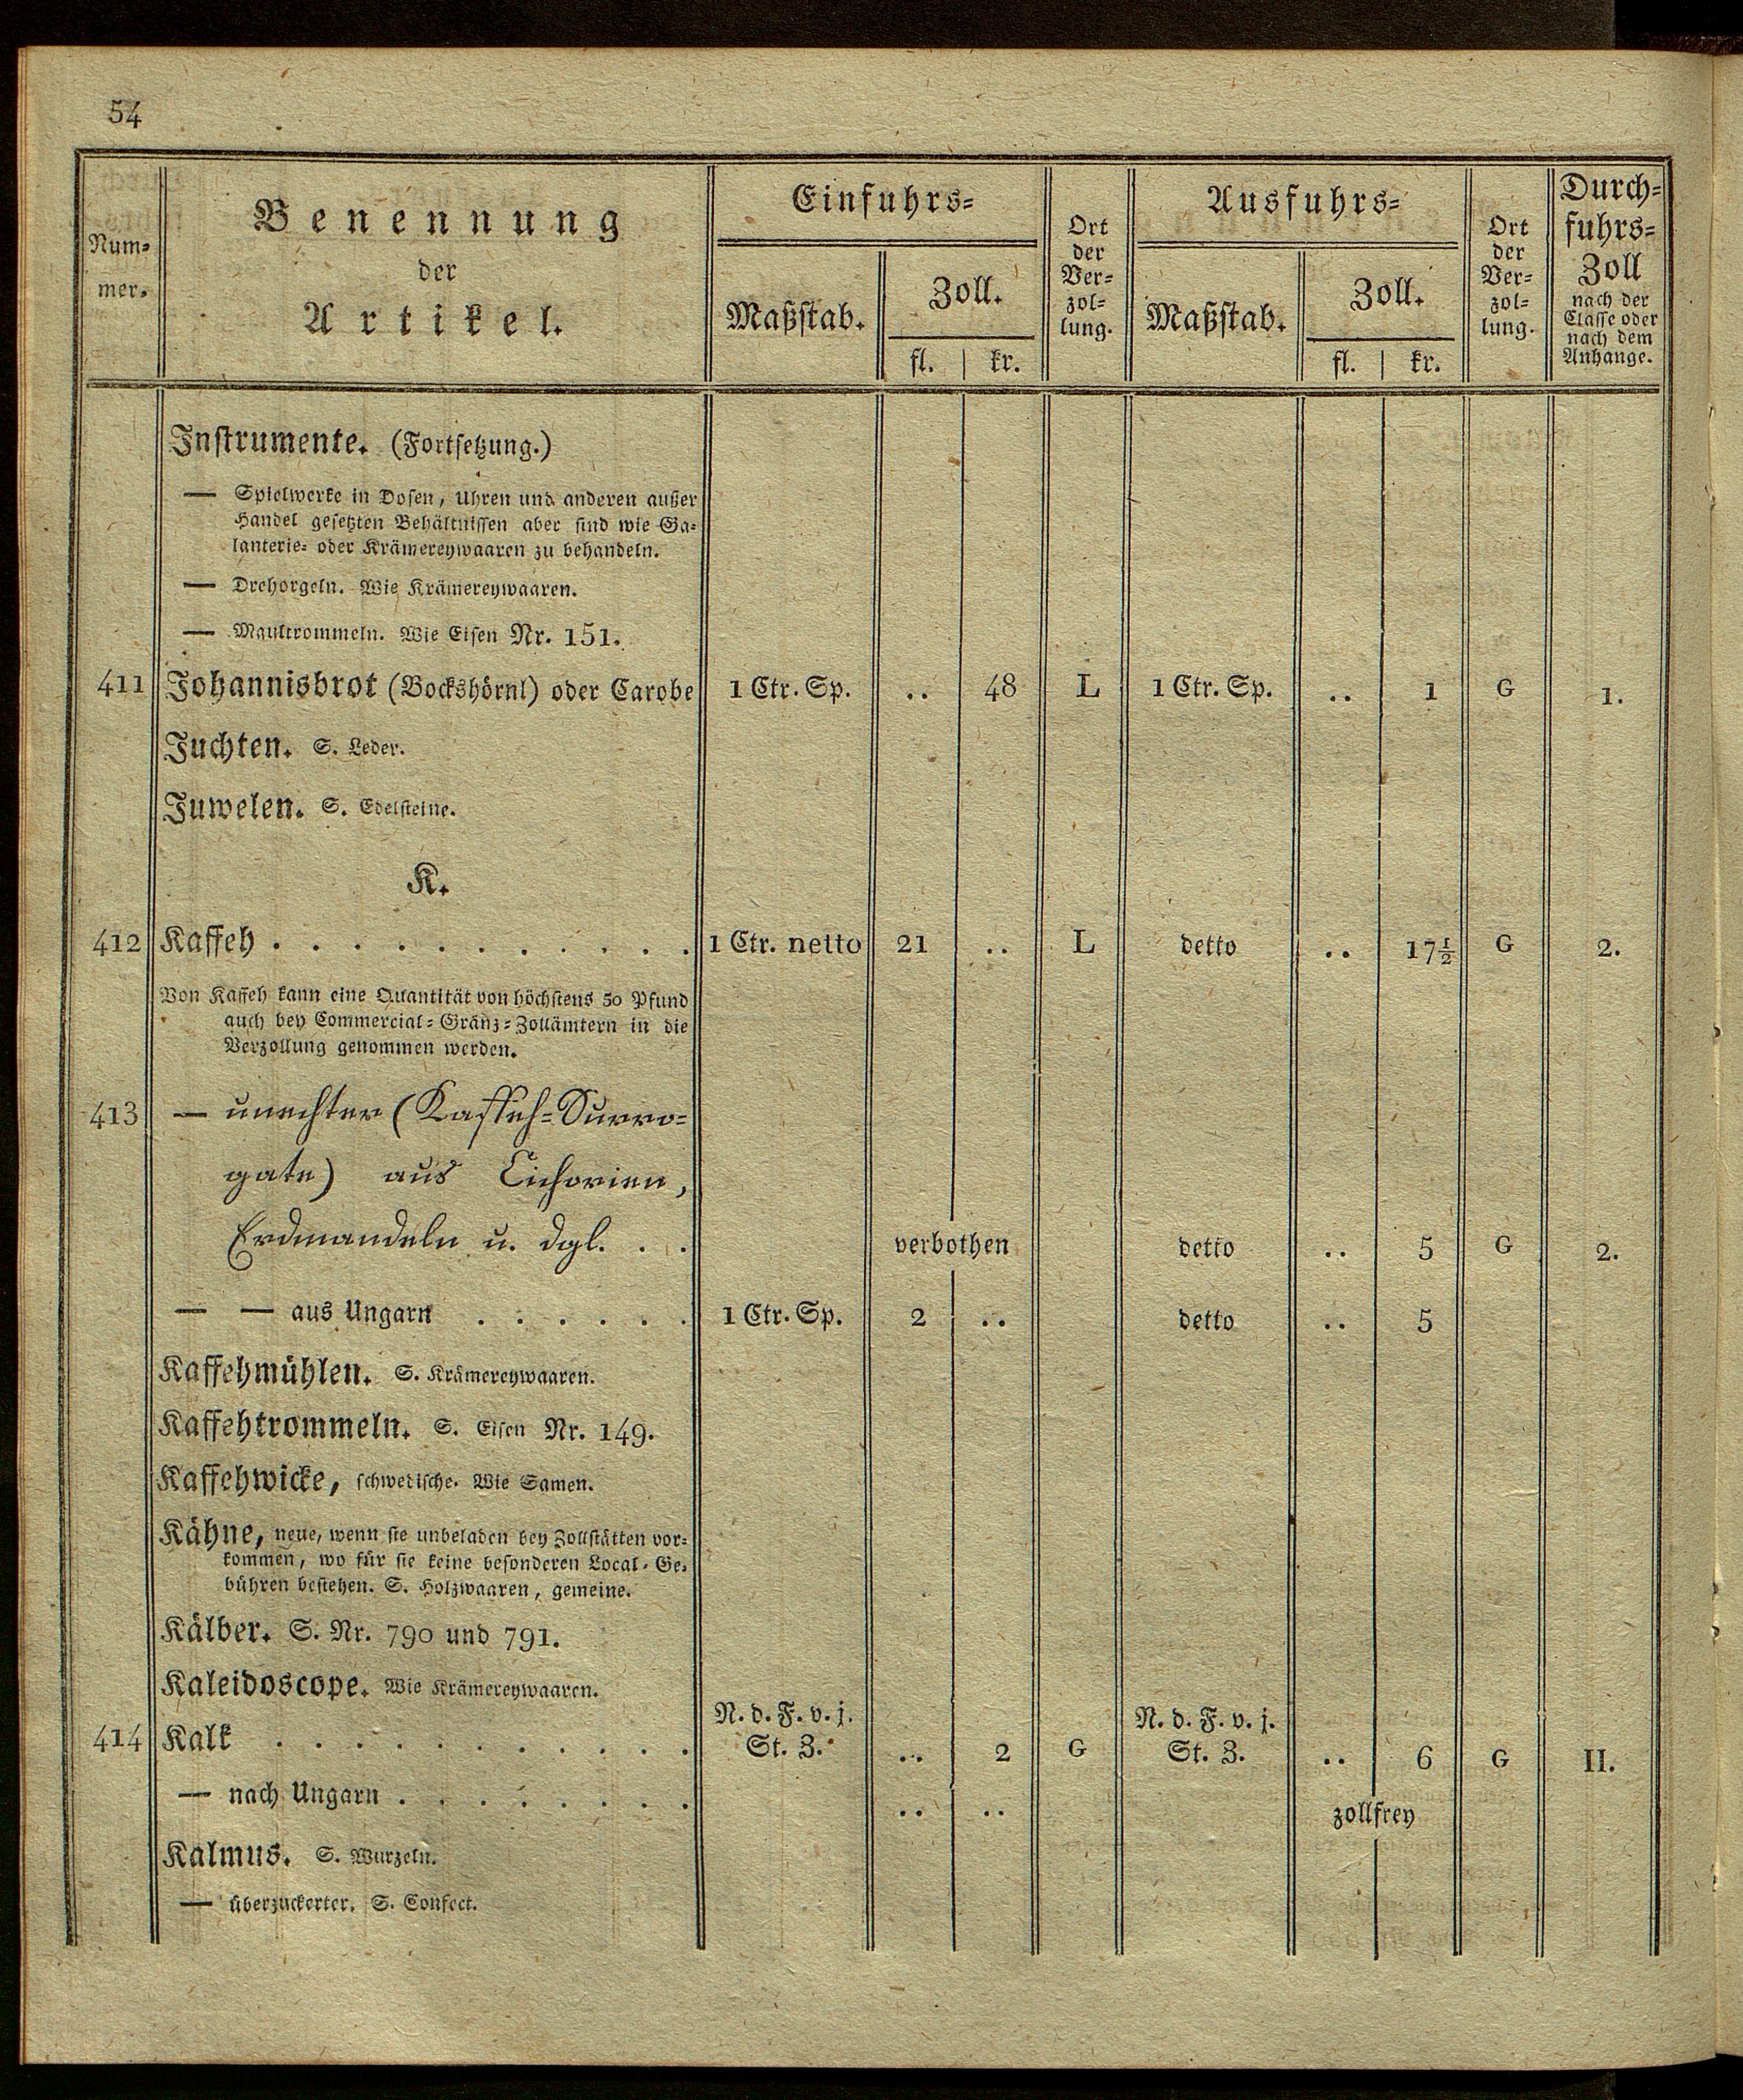 54
Num-
mer.
Benennung
der
Artikel.
Einfuhrs-
Maßstab.
Zoll.
fl. kr.
Ort
der
Ver-
zol-
lung.
Ausfuhrs-
Maßstab.
Zoll.
fl. kr.
Ort
der
Ver-
zol-
lung.
Durch-
fuhrs-
Zoll
nach der
Classe oder
nach dem
Anhange.
Instrumente. (Fortsetzung.)
— Spielwerke in Dosen, Uhren und anderen außer
Handel gesetzten Behältnissen aber sind wie Ga-
lanterie- oder Krämereywaaren zu behandeln.
— Drehorgeln. Wie Krämereywaaren.
— Maultrommeln. Wie Eisen Nr. 151.
411 Johannisbrot (Bockshörnl) oder Carobe 1 Ctr. Sp. .. 48 L 1 Ctr. Sp. .. 1 G 1.
Juchten. S. Leder.
Juwelen. S. Edelsteine.
K.
412 Kaffeh . . . . . . . . . . . 1 Ctr. netto 21 .. L detto .. 17½ G 2.
Von Kaffeh kann eine Quantität von höchstens 50 Pfund
auch bey Commercial-Gränz-Zollämtern in die
Verzollung genommen werden.
413 — unechter (Kaffeh-Surro-
gate) aus Cichorien,
Erdmandeln u. dgl. . . verbothen detto .. 5 G 2.
— — aus Ungarn . . . . . . 1 Ctr. Sp. 2 .. detto .. 5
Kaffehmühlen. S. Krämereywaaren.
Kaffehtrommeln. S. Eisen Nr. 149.
Kaffehwicke, schwedische. Wie Samen.
Kähne, neue, wenn sie unbeladen bey Zollstätten vor-
kommen, wo für sie keine besonderen Local-Ge-
bühren bestehen. S. Holzwaaren, gemeine.
Kälber. S. Nr. 790 und 791.
Kaleidoscope. Wie Krämereywaaren.
N. d. F. v. j. N. d. F. v. j.
414 Kalk . . . . . . . . . . . St. Z. .. 2 G St. Z. .. 6 G II.
— nach Ungarn . . . . . . . . .. .. zollfrey
Kalmus. S. Wurzeln.
— überzuckerter. S. Confect.